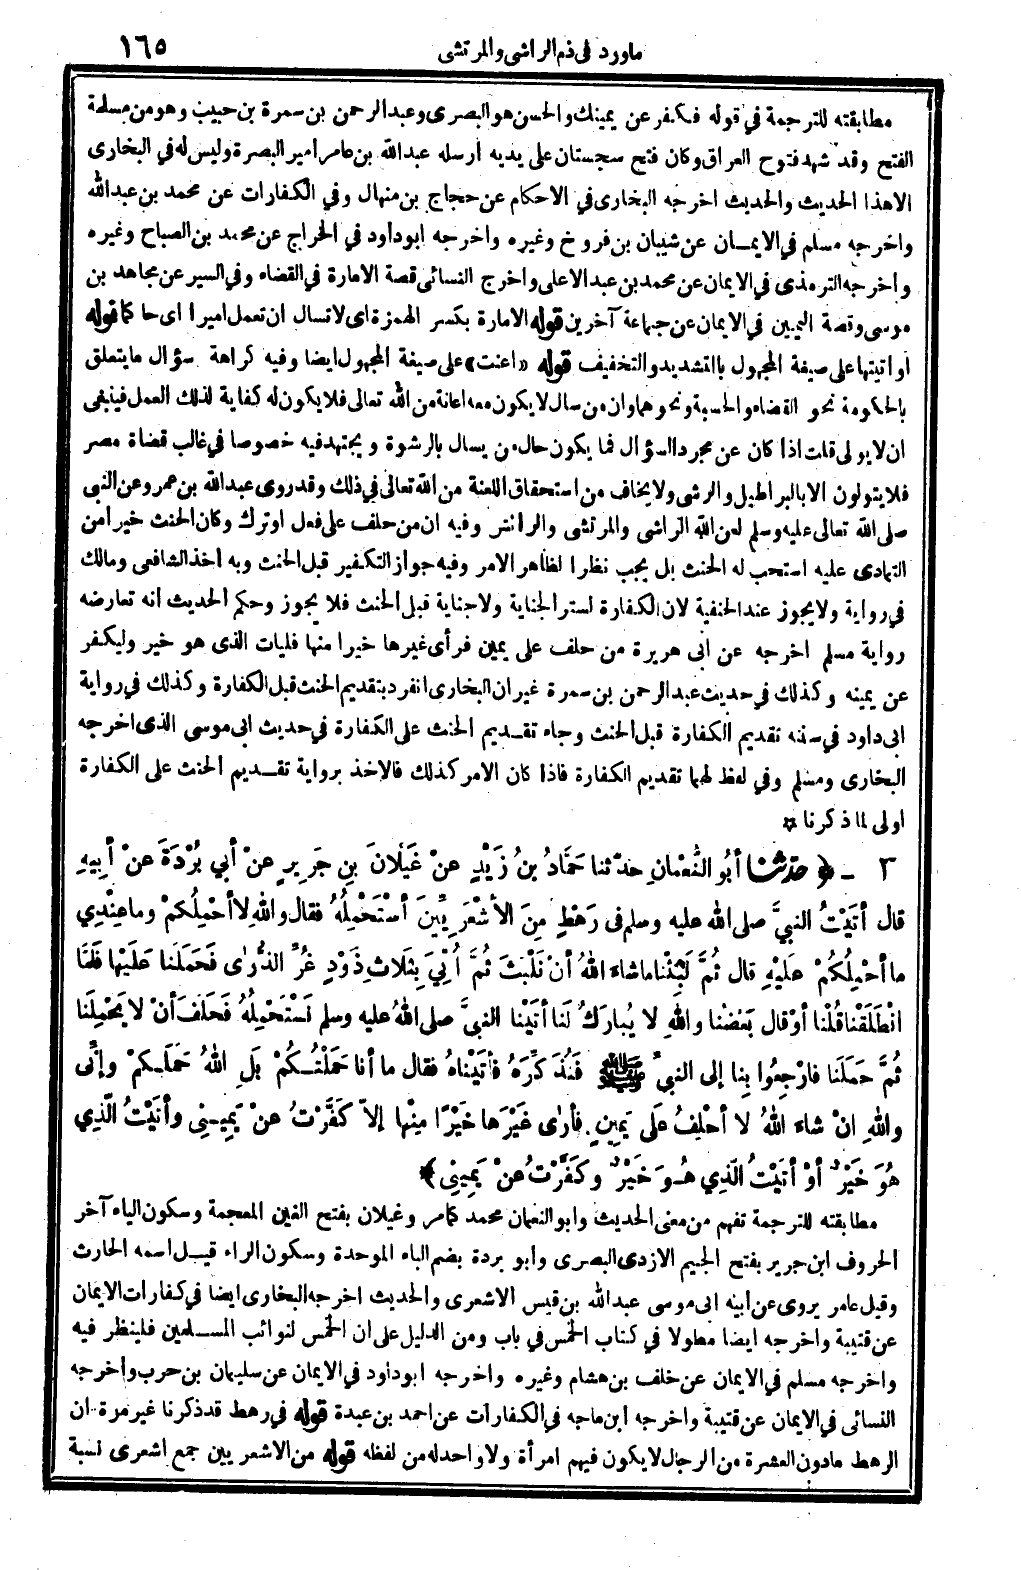 ماورد فى ذم الراشى والمرتشى ١٦٥
مطابقته للترجمة في قوله فكفر عن يمينك والحسن هو البصرى وعبد الرحمن بن سمرة بن حبيب وهو من مسلمة
الفتح وقد شهد فتوح العراق وكان فتح سجستان على يديه ارسله عبدالله بن عامر امير البصرة وليس له في البخارى
الاهذا الحديث والحديث اخرجه البخارى في الاحكام عن حجاج بن منهال وفي الكفارات عن محمد بن عبدالله
واخرجه مسلم في الايمان عن شيبان بن فروخ وغيره واخرجه ابوداود في الخراج عن محمد بن الصباح وغيره
واخرجه الترمذى في الايمان عن محمد بن عبد الاعلى واخرج النسائى قصة الامارة في القضاء وفي السير عن مجاهد بن
موسى وقصة اليمين في الايمان عن جماعة آخرين قوله الامارة بكسر الهمزة اى لاتسال ان تعمل اميرا اى حاكما قوله
اواتيتها على صيغة المجهول بالتشديد والتخفيف قوله «اعنت» على صيغة المجهول ايضا وفيه كراهة سؤال مايتعلق
بالحكومة نحو القضاء والحسبة ونحوهما وان من سال لايكون معه اعانة من الله تعالى فلا يكون له كفاية لذلك العمل فينبغى
ان لايولى قلت اذا كان عن مجرد السؤال فما يكون حال من يسال بالرشوة ويجتهد فيه خصوصا في غالب قضاة مصر
فلا يتولون الا بالبراطيل والرشى ولا يخاف من استحقاق اللعنة من الله تعالى في ذلك وقد روى عبدالله بن عمرو عن النبى
صلى الله تعالى عليه وسلم لعن الله الراشى والمرتشى والرائش وفيه ان من حلف على فعل اوترك وكان الحنث خيرا من
التمادى عليه استحب له الحنث بل يجب نظرا لظاهر الامر وفيه جواز التكفير قبل الحنث وبه اخذ الشافعى ومالك
في رواية ولا يجوز عند الحنفية لان الكفارة لستر الجناية ولاجناية قبل الحنث فلا يجوز وحكم الحديث انه تعارضه
رواية مسلم اخرجه عن ابى هريرة من حلف على يمين فرأى غيرها خيرا منها فليات الذى هو خير وليكفر
عن يمينه وكذلك في حديث عبد الرحمن بن سمرة غير ان البخارى انفرد بتقديم الحنث قبل الكفارة وكذلك في رواية
ابى داود في سننه تقديم الكفارة قبل الحنث وجاء تقديم الحنث على الكفارة في حديث ابى موسى الذى اخرجه
البخارى ومسلم وفي لفظ لهما تقديم الكفارة فاذا كان الامر كذلك فالاخذ برواية تقديم الحنث على الكفارة
اولى لما ذكرنا ۞
٣ - ﴿ حَدَّثَنَا أبُو النُّعْمَانِ حدّثنا حَمَّادُ بنُ زَيْدٍ عنْ غَيْلَانَ بنِ جَرِيرٍ عنْ أبي بُرْدَةَ عنْ أبِيهِ
قال أتَيْتُ النبيَّ صلى الله عليه وسلم فى رَهْطٍ مِنَ الأشْعَرِيِّينَ أسْتَحْمِلُهُ فقال واللهِ لا أحْمِلُكمْ وما عِنْدِي
ما أحْمِلُكُمْ عَلَيْهِ قال ثُمَّ لَبِثْنا ما شاءَ اللهُ أنْ نَلْبَثَ ثُمَّ أُتِيَ بِثَلاثِ ذَوْدٍ غُرِّ الذُّرَى فَحَمَلَنا عَلَيْها فَلَمَّا
انْطَلَقْنا قُلْنا أوْ قال بَعْضُنا واللهِ لا يُبارَكُ لَنا أتَيْنا النبيَّ صلى اللهُ عليه وسلم نَسْتَحْمِلُهُ فَحَلَفَ أنْ لا يَحْمِلَنا
ثُمَّ حَمَلَنا فارْجِعُوا بِنا إلى النبيِّ ﷺ فَنُذَكِّرَهُ فأتَيْناهُ فقال ما أنا حَمَلْتُكُمْ بَلِ اللهُ حَمَلَكمْ وإنِّى
واللهِ انْ شاءَ اللهُ لا أحْلِفُ عَلَى يَمِينٍ فأرَى غَيْرَها خَيْرًا مِنْها إلاّ كَفَّرْتُ عنْ يَمِينِى وأتَيْتُ الَّذِي
هُوَ خَيْرٌ أوْ أتَيْتُ الَّذِي هُوَ خَيْرٌ وكَفَّرْتُ عنْ يَمِينِى ﴾
مطابقته للترجمة تفهم من معنى الحديث وابو النعمان محمد كمامر وغيلان بفتح الغين المعجمة وسكون الياء آخر
الحروف ابن جرير بفتح الجيم الازدى البصرى وأبو بردة بضم الباء الموحدة وسكون الراء قيل اسمه الحارث
وقيل عامر يروى عن ابيه ابى موسى عبدالله بن قيس الاشعرى والحديث اخرجه البخارى ايضا في كفارات الايمان
عن قتيبة واخرجه ايضا مطولا في كتاب الخمس في باب ومن الدليل على ان الخمس لنوائب المسلمين فلينظر فيه
واخرجه مسلم في الايمان عن خلف بن هشام وغيره واخرجه ابوداود في الايمان عن سليمان بن حرب واخرجه
النسائى في الايمان عن قتيبة واخرجه ابن ماجه في الكفارات عن احمد بن عبدة قوله في رهط قد ذكرنا غير مرة ان
الرهط مادون العشرة من الرجال لايكون فيهم امرأة ولا واحد له من لفظه قوله من الاشعريين جمع اشعرى نسبة